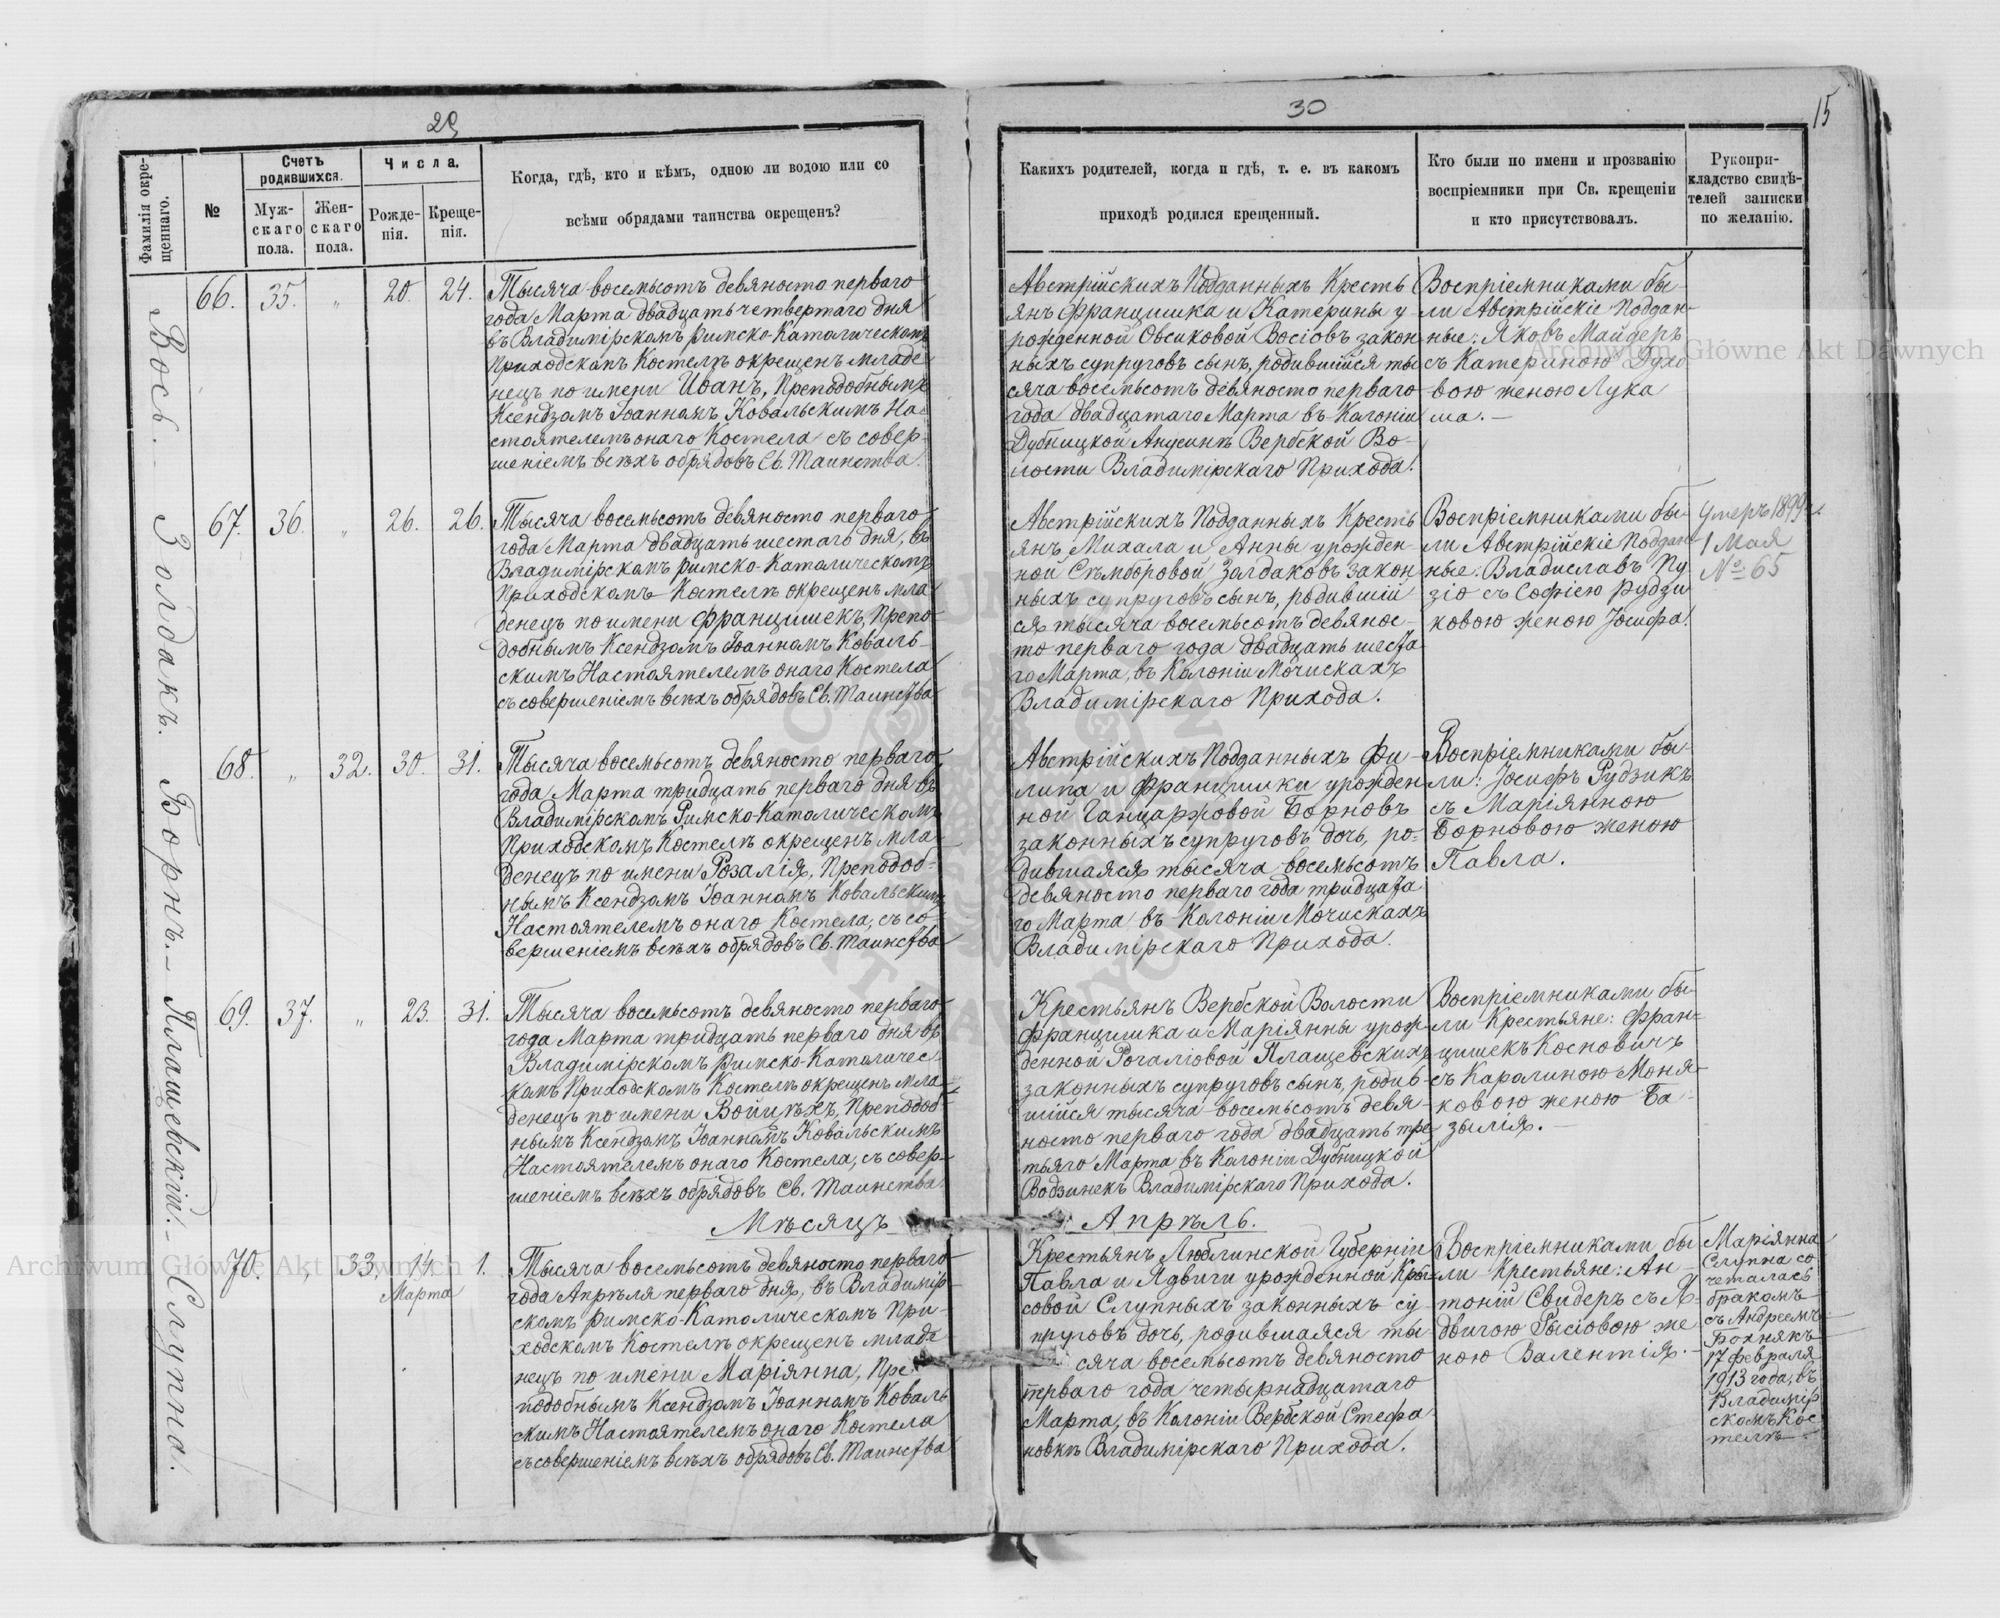 29
Фамилія окре-
щеннаго.
№
Счетъ
родившихся.
Муж-
скаго
пола.
Жен-
скаго
пола.
Числа.
Рожде-
нія.
Креще-
нія.
Когда, гдѣ, кто и кѣмъ, одною ли водою или со
всѣми обрядами таинства окрещенъ?
Вось.
66. 35. „ 20. 24.
Тысяча восемьсотъ девяносто перваго
года Марта двадцать четвертаго дня
въ Владимірскомъ Римско-Католическомъ
Приходскомъ Костелѣ окрещенъ младе
нецъ по имени Иванъ, Преподобнымъ
Ксендзомъ Іоанномъ Ковальскимъ На-
стоятелемъ онаго Костела съ совер-
шеніемъ всѣхъ обрядовъ Св. Таинства.
Золдакъ.
67. 36. „ 26. 26.
Тысяча восемьсотъ девяносто перваго
года Марта двадцать шестаго дня, въ
Владимірскомъ Римско-Католическомъ
Приходскомъ Костелѣ окрещенъ мла
денецъ по имени Францишекъ, Препо-
добнымъ Ксендзомъ Іоанномъ Коваль-
скимъ Настоятелемъ онаго Костела
съ совершеніемъ всѣхъ обрядовъ Св. Таинства
Борнъ.
68. „ 32. 30. 31.
Тысяча восемьсотъ девяносто перваго
года Марта тридцать перваго дня въ
Владимірскомъ Римско-Католическомъ
Приходскомъ Костелѣ окрещенъ мла-
денецъ по имени Розалія, Преподоб-
нымъ Ксендзомъ Іоанномъ Ковальскимъ
Настоятелемъ онаго Костела, съ со-
вершеніемъ всѣхъ обрядовъ Св. Таинства
Плащевскій.
69. 37. „ 23. 31.
Тысяча восемьсотъ девяносто перваго
года Марта тридцать перваго дня въ
Владимірскомъ Римско-Католичес-
комъ Приходскомъ Костелѣ окрещенъ мла-
денецъ по имени Войцѣхъ, Преподоб-
нымъ Ксендзомъ Іоанномъ Ковальскимъ
Настоятелемъ онаго Костела, съ совер-
шеніемъ всѣхъ обрядовъ Св. Таинства.
Мѣсяцъ
Слупна.
70. „ 33. 14. 1.
Марта
Тысяча восемьсотъ девяносто перваго
года Апрѣля перваго дня, въ Владимір-
скомъ Римско-Католическомъ При-
ходскомъ Костелѣ окрещенъ младе
нецъ по имени Маріянна, Пре-
подобнымъ Ксендзомъ Іоанномъ Коваль
скимъ Настоятелемъ онаго Костела
съ совершеніемъ всѣхъ обрядовъ Св. Таинства
30
15
Какихъ родителей, когда и гдѣ, т. е. въ какомъ
приходѣ родился крещенный.
Кто были по имени и прозванію
воспріемники при Св. крещеніи
и кто присутствовалъ.
Рукопри-
кладство свидѣ-
телей записки
по желанію.
Австрійскихъ Подданныхъ Кресть
янъ Францишка и Катерины у-
рожденной Овсиковой Восіовъ закон
ныхъ супруговъ сынъ, родившійся ты
сяча восемьсотъ девяносто перваго
года двадцатаго Марта въ Колоніи
Дубницкой Анусинѣ Вербской Во-
лости Владимірскаго Прихода.
Воспріемниками бы-
ли Австрійскіе Поддан-
ные: Яковъ Майдеръ
съ Катериною Духо
вою женою Лука
ша.
Австрійскихъ Подданныхъ Кресть
янъ Михала и Анны урожден-
ной Сѣмборовой Золдаковъ закон
ныхъ супруговъ сынъ, родившій
ся тысяча восемьсотъ девянос-
то перваго года двадцать шеста
го Марта, въ Колоніи Мочискахъ
Владимірскаго Прихода.
Воспріемниками бы-
ли Австрійскіе Поддан
ные: Владиславъ Пу
зіо съ Софіею Рудзи
ковою женою Іосифа.
Умеръ 1899 г.
1 Мая
№ 65
Австрійскихъ Подданныхъ Фи-
липа и Францишки урожден
ной Ганцаржовой Борновъ
законныхъ супруговъ дочь, ро-
дившаяся тысяча восемьсотъ
девяносто перваго года тридцата
го Марта въ Колоніи Мочискахъ
Владимірскаго Прихода.
Воспріемниками бы-
ли: Іосифъ Рудзикъ
съ Маріянною
Борновою женою
Павла.
Крестьянъ Вербской Волости
Францишка и Маріянны урож-
денной Рогаліовой Плащевскихъ
законныхъ супруговъ сынъ, родив-
шійся тысяча восемьсотъ девя-
носто перваго года двадцать тре
тьяго Марта въ Колоніи Дубницкой
Водзинекъ Владимірскаго Прихода.
Воспріемниками бы-
ли Крестьяне: Фран-
цишекъ Косновичъ
съ Каролиною Моня-
ковою женою Ба-
зылія.
Апрѣль.
Крестьянъ Люблинской Губерніи
Павла и Ядвиги урожденной Кры-
совой Слупныхъ законныхъ су-
пруговъ дочь, родившаяся ты
сяча восемьсотъ девяносто
перваго года четырнадцатаго
Марта, въ Колоніи Вербской Стефа
новкѣ Владимірскаго Прихода.
Воспріемниками бы
ли Крестьяне: Ан-
тоній Свидеръ съ Я-
двигою Рысіовою же
ною Валентія.
Маріянна
Слупна со
четалась
бракомъ
съ Андреемъ
Бохнякъ
17 февраля
1913 года, въ
Владимір
скомъ Кос
телѣ
Archiwum Główne Akt Dawnych
Archiwum Główne Akt Dawnych